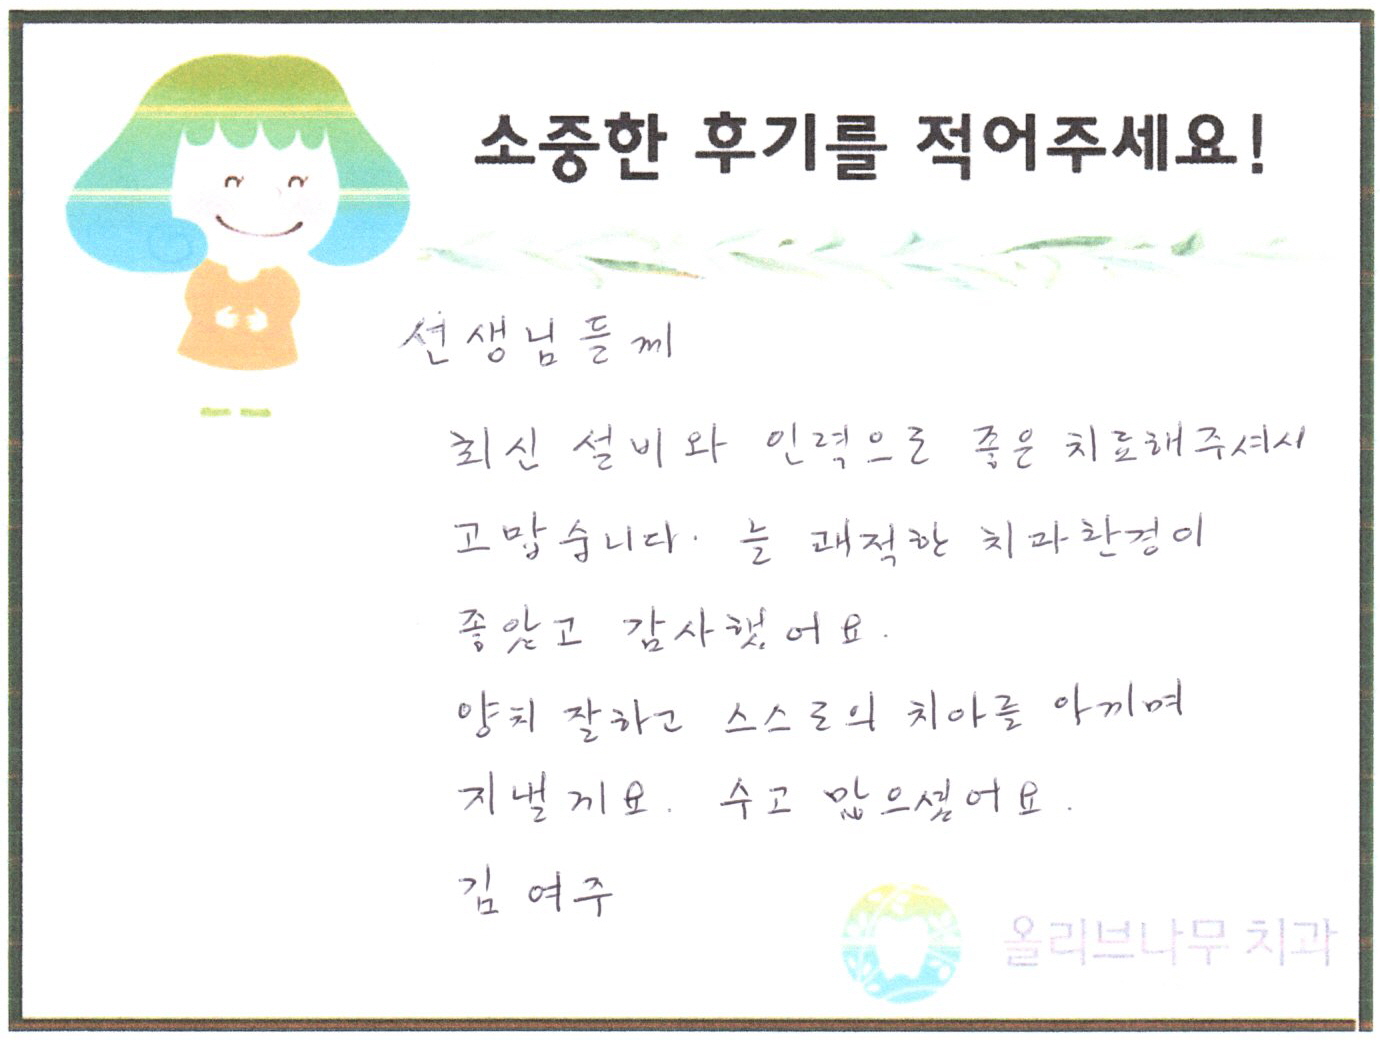 소중한 후기를 적어주세요!
선생님들께
최신 설비와 인력으로 좋은 치료해주셔서
고맙습니다. 늘 쾌적한 치과환경이
좋았고 감사했어요.
양치 잘하고 스스로의 치아를 아끼며
지낼께요. 수고 많으셨어요.
김여주
올리브나무 치과